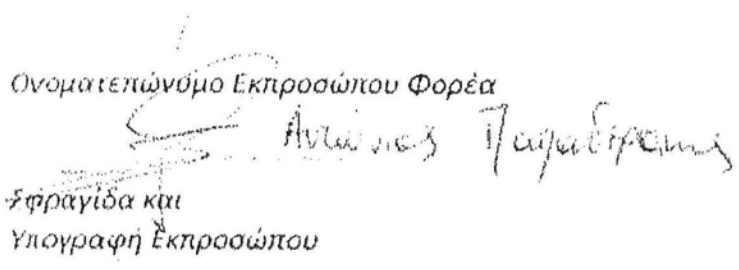 Ονοματεπώνυμο Εκπροσώπου Φορέα
Αντώνιος
Σφραγίδα και
Υπογραφή Εκπροσώπου